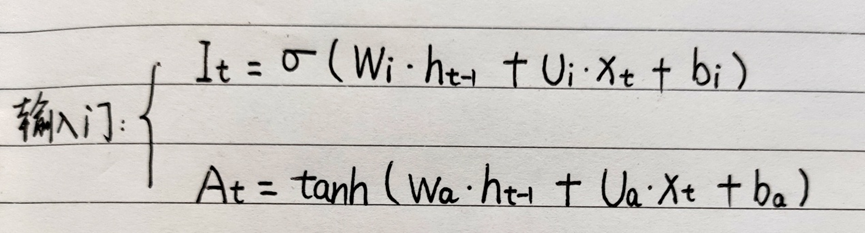 I_t = σ(W_i · h_{t-1} + U_i · x_t + b_i)
输入门:
A_t = tanh(W_a · h_{t-1} + U_a · x_t + b_a)